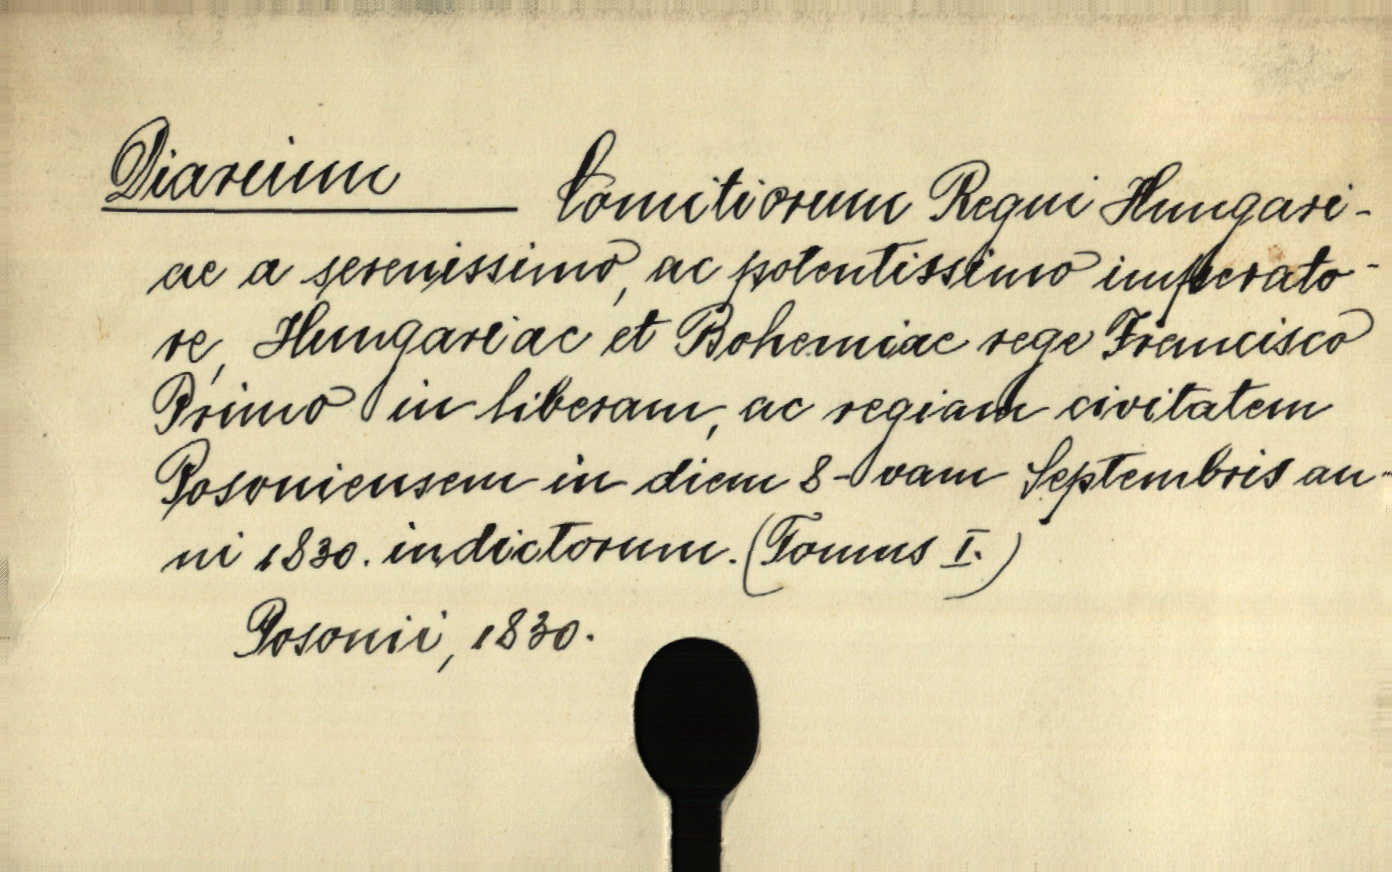 Diarium Comitiorum Regni Hungari-
ae a serenissimo, ac potentissimo imperato-
re, Hungariae et Bohemiae rege Francisco
Primo in liberam, ac regiam civitatem
Posoniensem in diem 8-vam Septembris an-
ni 1830. indictorum. (Tomus I.)
Posonii, 1830.